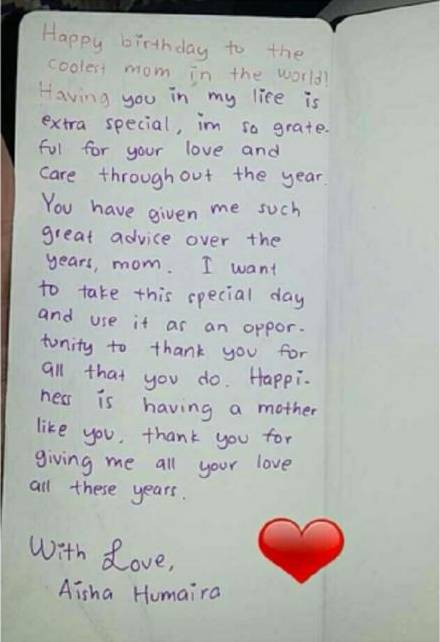 Happy birthday to the
coolest mom in the world!
Having you in my life is
extra special, im so grate-
ful for your love and
care throughout the year.
You have given me such
great advice over the
years, mom. I want
to take this special day
and use it as an oppor-
tunity to thank you for
all that you do. Happi-
ness is having a mother
like you. thank you for
giving me all your love
all these years.
With Love,
Aisha Humaira